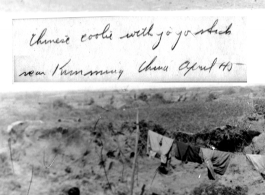 Chinese coolie with yo yo stick
near Kunming China April 45